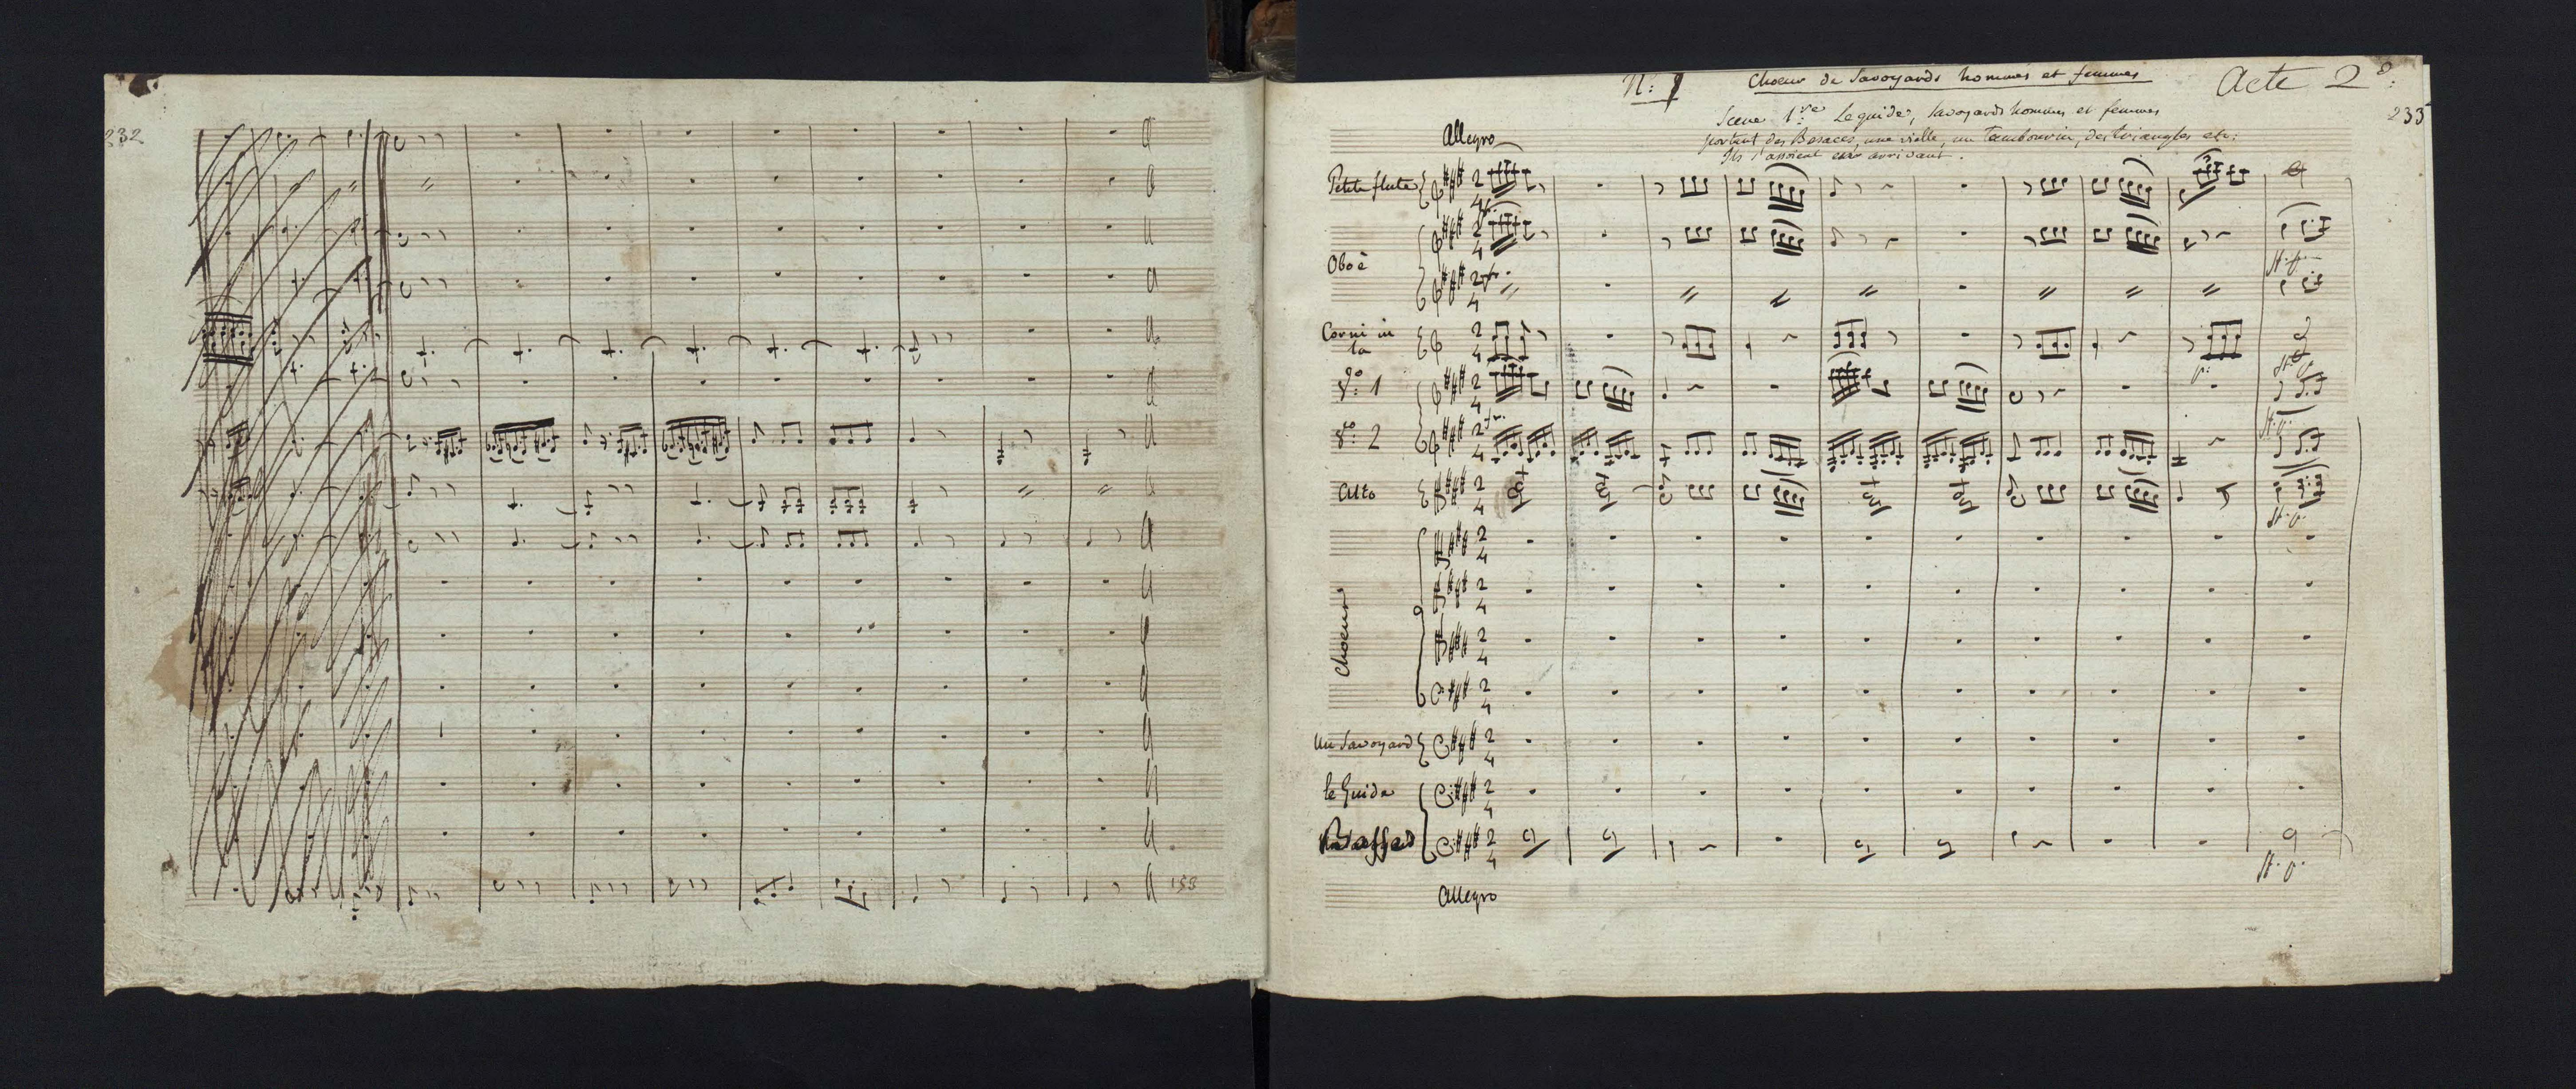 232
153
N: 1 Choeur de Savoyards hommes et femmes Acte 2e:
233
Scene 1re Le guide, Savoyards hommes et femmes
portent des Besaces, une vielle, un Tambourin, des triangles etc:
Ils s'assoient en arrivant.
Allegro
Petite flute
Oboè
Corni in
la
Vo: 1
Vo: 2
Alto
Choeur
Un Savoyard
le Guide
Allegro